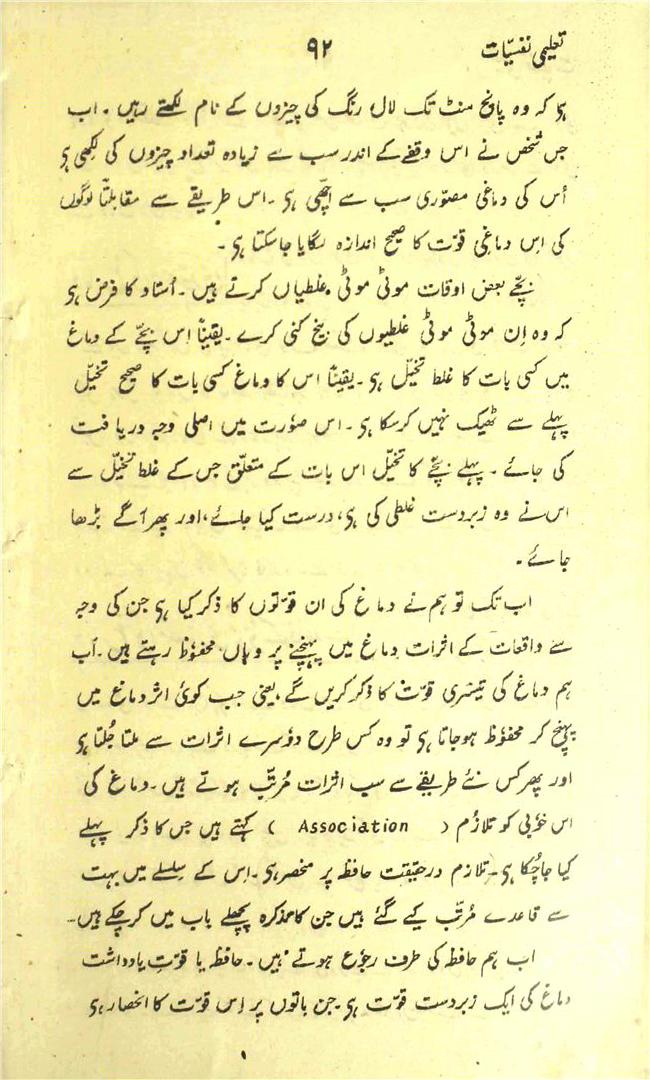 تعلیمی نفسیّات ۹۲
ہی کہ وہ پانچ منٹ تک لال رنگ کی چیزوں کے نام لکھتے رہیں۔ اب
جس شخص نے اس وقفے کے اندر سب سے زیادہ تعداد چیزوں کی لکھی ہی
اُس کی دماغی مصوّری سب سے اچھّی ہی۔ اس طریقے سے مقابلتاً لوگوں
کی اِس دماغی قوّت کا صحیح اندازہ لگایا جاسکتا ہی۔
بچّے بعض اوقات موٹی موٹی غلطیاں کرتے ہیں۔ اُستاد کا فرض ہی
کہ وہ اِن موٹی موٹی غلطیوں کی بیخ کنی کرے۔ یقیناً اِس بچّے کے دماغ
میں کسی بات کا غلط تخیّل ہی۔ یقیناً اس کا دماغ کسی بات کا صحیح تخیّل
پہلے سے ٹھیک نہیں کرسکا ہی۔ اس صورت میں اصلی وجہ دریافت
کی جائے۔ پہلے بچّے کا تخیّل اس بات کے متعلّق جس کے غلط تخیّل سے
اس نے وہ زبردست غلطی کی ہی، درست کیا جائے، اور پھر آگے بڑھا
جائے۔
اب تک تو ہم نے دماغ کی ان قوّتوں کا ذکر کیا ہی جن کی وجہ
سے واقعات کے اثرات دماغ میں پہنچنے پر وہاں محفوُظ رہتے ہیں۔ اَب
ہم دماغ کی تیسری قوّت کا ذکر کریں گے، یعنی جب کوئی اثر دماغ میں
پہنچ کر محفوُظ ہوجاتا ہی تو وہ کس طرح دوُسرے اثرات سے ملتا جُلتا ہی
اور پھر کس نئے طریقے سے سب اثرات مُرتّب ہوتے ہیں۔ دماغ کی
اس خوُبی کو تلازُم ( Association ) کہتے ہیں جس کا ذکر پہلے
کیا جاچُکا ہی۔ تلازم درحقیقت حافظہ پر منحصر ہی۔ اِس کے سِلسلے میں بہت
سے قاعدے مُرتّب کیے گئے ہیں جن کا تذکرہ پچھلے باب میں کرچکے ہیں۔
اب ہم حافظہ کی طرف رجوُع ہوتے ہیں۔ حافظہ یا قوّتِ یادداشت
دماغ کی ایک زبردست قوّت ہی جن باتوں پر اِس قوّت کا انحصار ہی